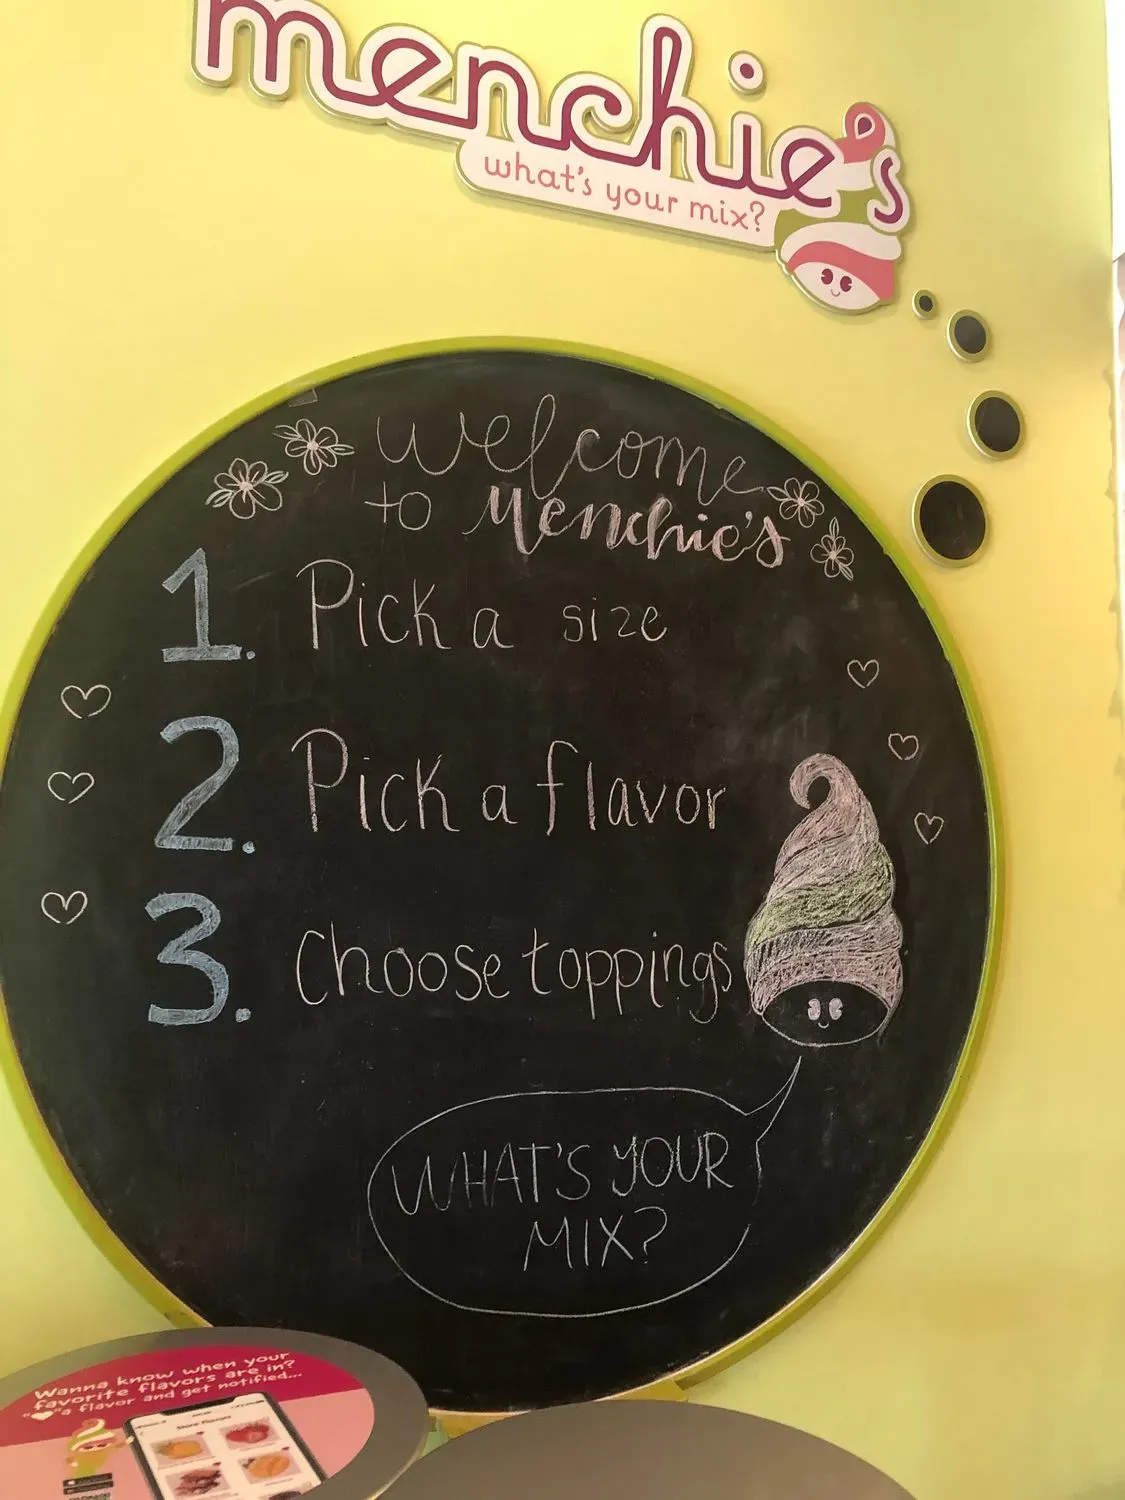 menchie's
what's your mix?
Welcome
to Menchie's
1. Pick a size
2. Pick a flavor
3. Choose toppings
WHAT'S YOUR
MIX?
Wanna know when your
favorite flavors are in?
"♥" a flavor and get notified...